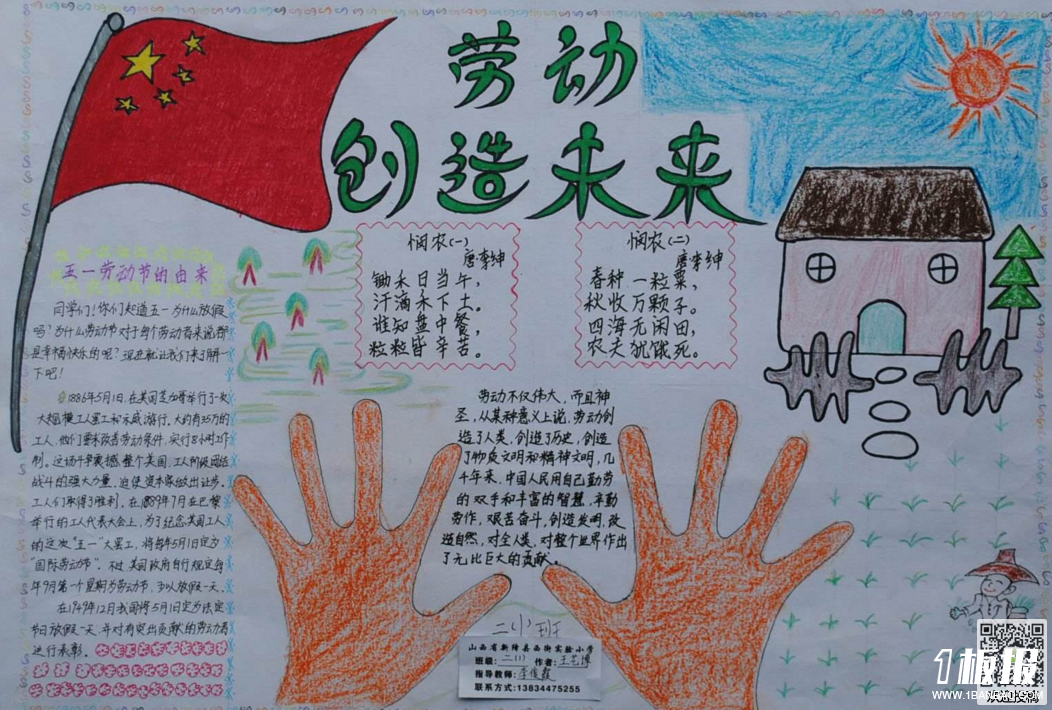 劳动
创造未来
五一劳动节的由来
同学们！你们知道五一为什么放假
吗？为什么劳动节对于每个劳动者来说都
是幸福快乐的呢？现在就让我们来了解一
下吧！
1886年5月1日,在美国芝加哥举行了一次
大规模工人罢工和示威游行,大约有35万的
工人,他们要求改善劳动条件,实行8小时工作
制。这场斗争震撼整个美国,工人阶级团结
战斗的强大力量,迫使资本家做出让步。
工人们取得了胜利。在1889年7月在巴黎
举行的工人代表大会上,为了纪念美国工人
的这次“五一”大罢工，将每年5月1日定为
“国际劳动节”。不过,美国政府自行规定每
年9月第一个星期为劳动节，可以放假一天。
在1949年12月我国将5月1日定为法定
节日放假一天,并对有突出贡献的劳动者
进行表彰。
悯农(一)
唐李绅
锄禾日当午，
汗滴禾下土。
谁知盘中餐，
粒粒皆辛苦。
悯农(二)
唐李绅
春种一粒粟，
秋收万颗子。
四海无闲田，
农夫犹饿死。
劳动不仅伟大，而且神
圣，从某种意义上说，劳动创
造了人类，创造了历史，创造
了物质文明和精神文明，几
千年来，中国人民用自己勤劳
的双手和丰富的智慧，辛勤
劳作，艰苦奋斗，创造发明，改
造自然，对全人类，对整个世界作出
了无比巨大的贡献。
二(1)班
山西省新绛县西街实验小学
班级：二(1) 作者：王艺博
指导教师：李俊霞
联系方式:13834475255
1板报
WWW.1BANBAO.COM
欢迎投稿